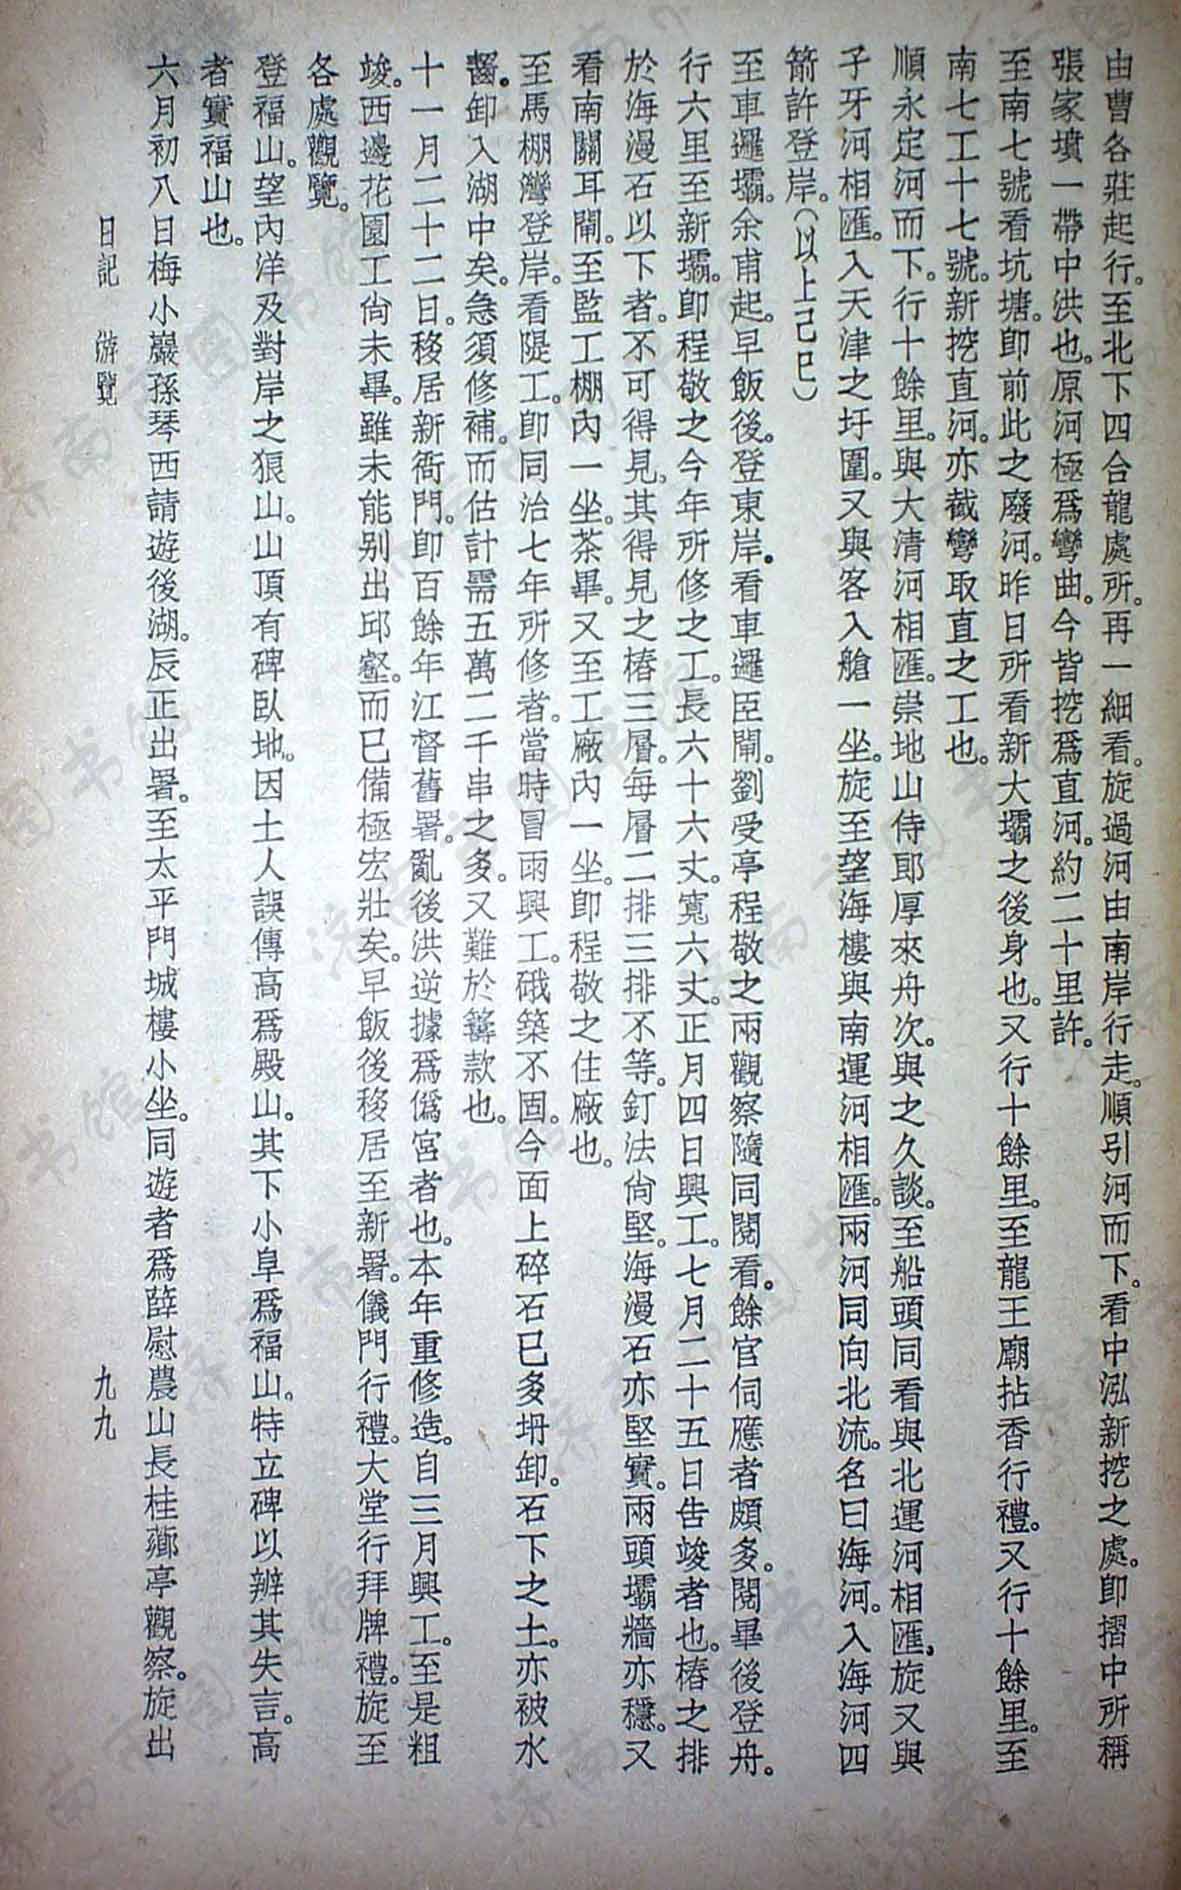 由曹各莊起行。至北下四合龍處所。再一細看。旋過河由南岸行走。順引河而下。看中泓新挖之處。卽摺中所稱
張家墳一帶中洪也。原河極爲彎曲。今皆挖爲直河。約二十里許。
至南七號看坑塘。卽前此之廢河。昨日所看新大壩之後身也。又行十餘里。至龍王廟拈香行禮。又行十餘里。至
南七工十七號。新挖直河。亦截彎取直之工也。
順永定河而下。行十餘里。與大清河相匯。崇地山侍郎厚來舟次。與之久談。至船頭同看與北運河相匯。旋又與
子牙河相匯。入天津之圩圍。又與客入艙一坐。旋至望海樓與南運河相匯。兩河同向北流。名曰海河。入海河四
箭許登岸。（以上己巳）
至車邏壩。余甫起。早飯後。登東岸。看車邏臣閘。劉受亭程敬之兩觀察隨同閱看。餘官伺應者頗多。閱畢後登舟。
行六里至新壩。卽程敬之今年所修之工。長六十六丈。寬六丈。正月四日興工。七月二十五日告竣者也。樁之排
於海漫石以下者。不可得見。其得見之樁三層。每層二排三排不等。釘法尙堅。海漫石亦堅實。兩頭壩牆亦穩。又
看南關耳閘。至監工棚內一坐。茶畢。又至工廠內一坐。卽程敬之住廠也。
至馬棚灣登岸。看隄工。卽同治七年所修者。當時冒雨興工。硪築不固。今面上碎石已多坍卸。石下之土。亦被水
齧。卸入湖中矣。急須修補。而估計需五萬二千串之多。又難於籌款也。
十一月二十二日。移居新衙門。卽百餘年江督舊署。亂後洪逆據爲僞宮者也。本年重修造。自三月興工。至是粗
竣。西邊花園工尙未畢。雖未能別出邱壑。而已備極宏壯矣。早飯後移居至新署。儀門行禮。大堂行拜牌禮。旋至
各處觀覽。
登福山。望內洋及對岸之狼山。山頂有碑臥地。因土人誤傳高爲殿山。其下小阜爲福山。特立碑以辨其失言。高
者實福山也。
六月初八日梅小巖孫琴西請遊後湖。辰正出署。至太平門城樓小坐。同遊者爲薛慰農山長桂薌亭觀察。旋出
日記　游覽　九九